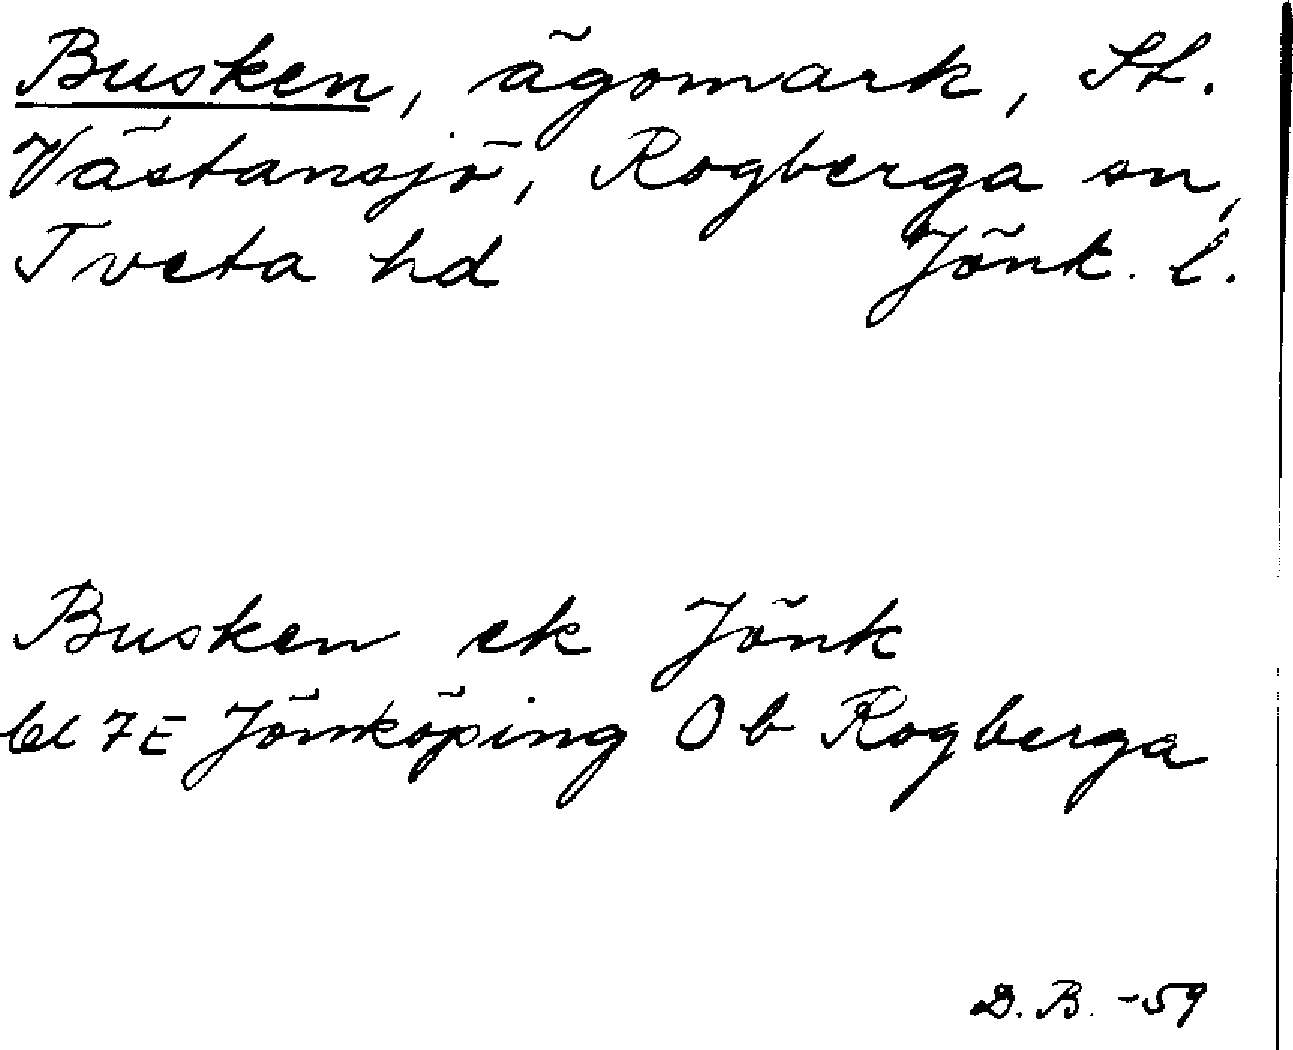 Busken, ägomark, St.
Västansjö, Rogberga sn,
Tveta hd Jönk. l.
Busken ek Jönk
bl 7E Jönköping Ob Rogberga
D. B. -59